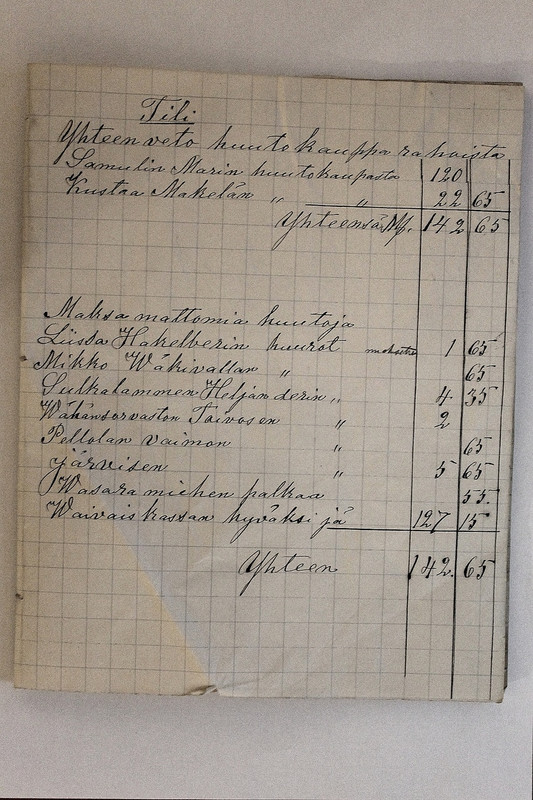 Tili
Yhteenveto huutokaupparahoista
Samulin Marin huutokaupasta 120
Kustaa Makelän " " 22 65
Yhteensä Mk. 142 65
Maksamattomia huutoja
Liissa Hakelberin huurot maksetu 1 65
Mikko Wäkivallan " 65
Sulkalammen Heljanderin " 4 35
Wähänsorvaston Toivosen " 2
Pellolan vaimon " 65
Järvisen " 5 65
Wasaramiehen palkaa 55.
Waivaiskassan hyväksi jä 127 15
Yhteen 142. 65